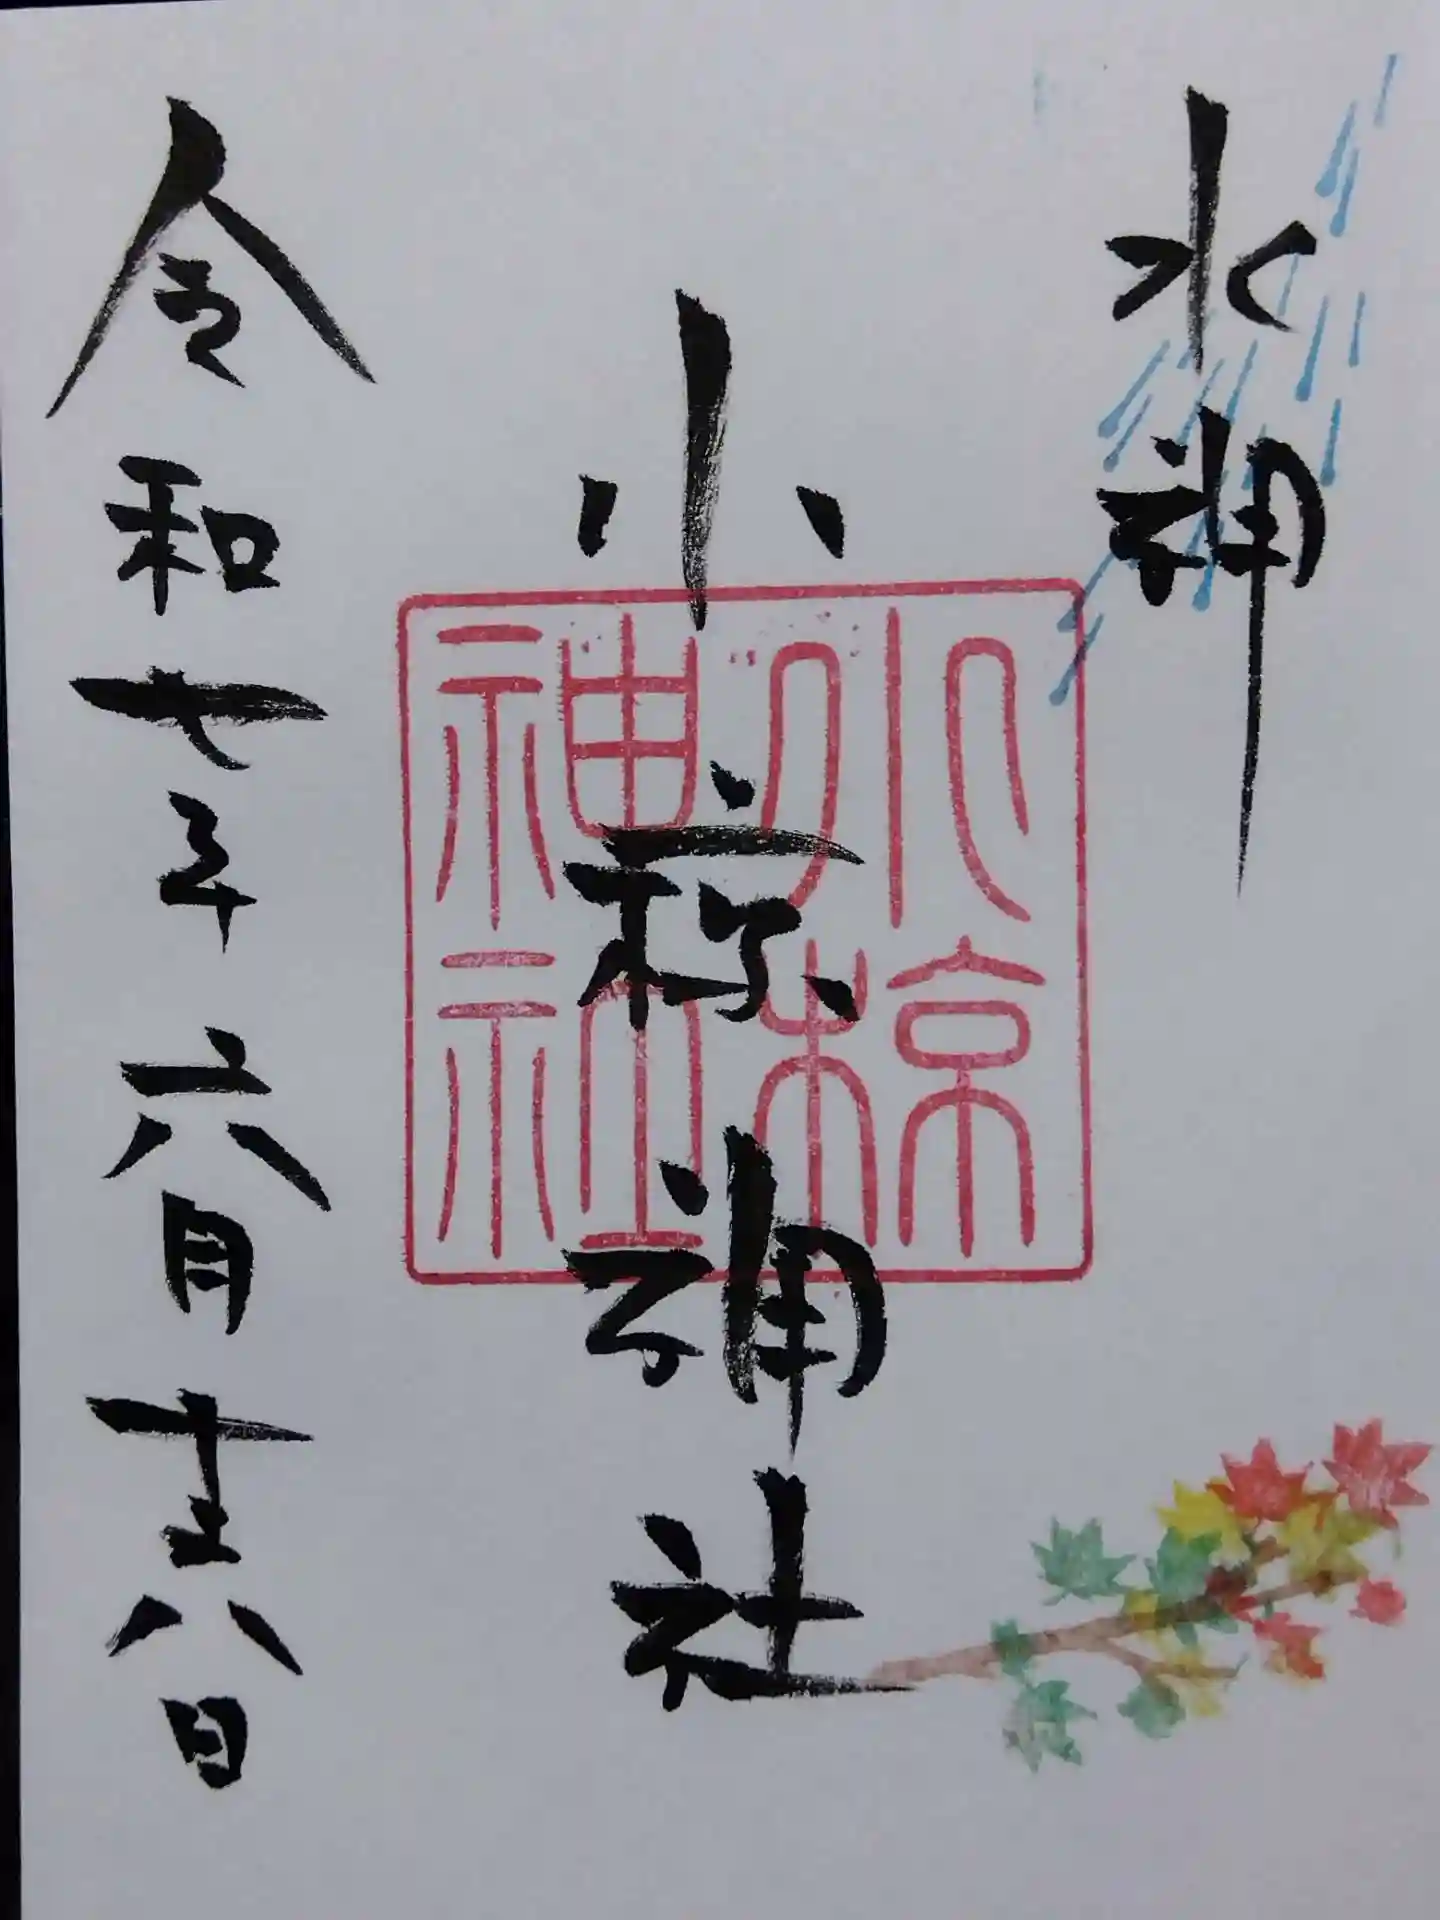 水神
小椋神社
小椋
神社
令和七年六月十八日